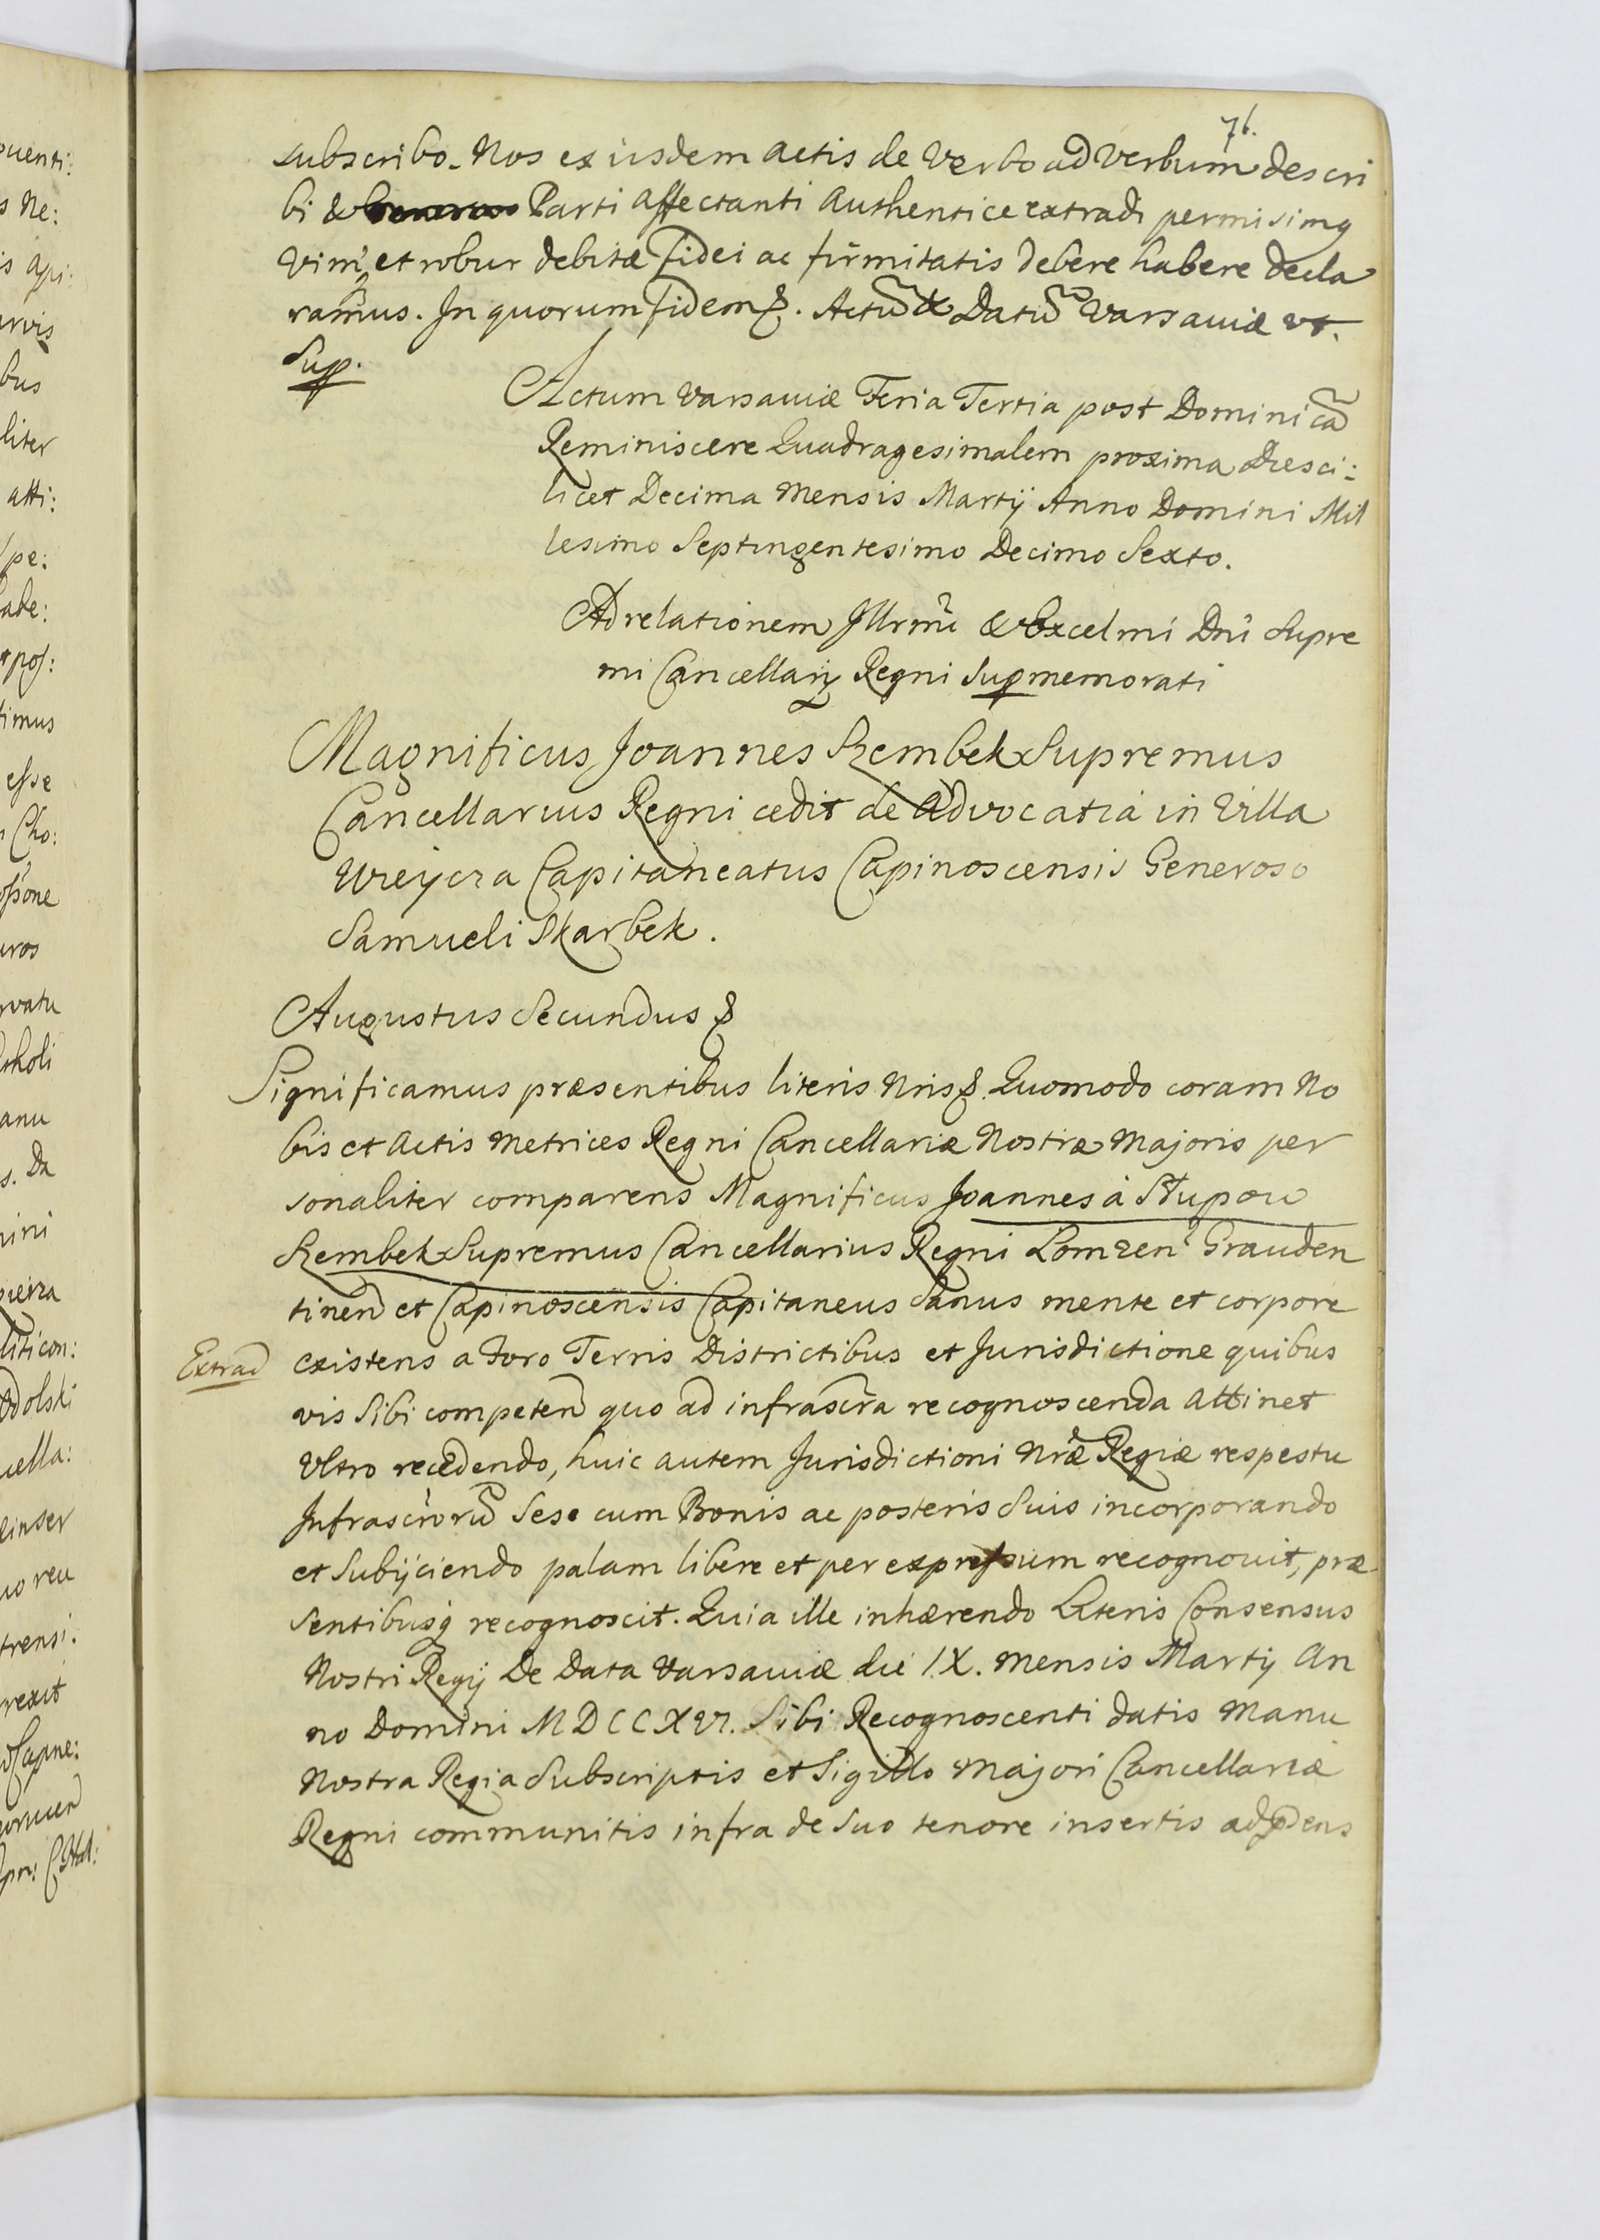 76.
subscribo. Nos ex iisdem actis de Verbo ad Verbum descri
bi & Parti affectanti Authentice extradi permisimq
Vim et robur debitæ fidei ac firmitatis debere habere decla
ramus. In quorum fidem &. Actũ & Datũ Varsauiæ vt.
Sup.
Actum Varsauiæ Feria Tertia post Dominicã
Reminiscere Quadragesimalem proxima Die sci:
licet Decima Mensis Martij Anno Domini Mil
lesimo Septingentesimo Decimo Sexto.
Ad relationem Illrmi & Excelmi Dni Supre
mi Cancellarij Regni Supmemorati
Magnificus Joannes Szembek Supremus
Cancellarius Regni cedit de Advocatiá in Villa
Wiejcza Capitaneatus Capinoscensis Generoso
Samueli Skarbek.
Augustus Secundus &
Significamus præsentibus literis Nris &. Quomodo coram No
bis et Actis Metrices Regni Cancellariæ Nostræ Majoris per
sonaliter comparens Magnificus Joannes à Słupow
Szembek Supremus Cancellarius Regni Lomzen Grauden
tinen et Capinoscensis Capitaneus Sanus mente et corpore
Extrad
existens a Foro Terris Districtibus et Jurisdictione quibus
vis Sibi competen quo ad infrascra recognoscenda attinet
Vltro recedendo, huic autem Jurisdictioni Nræ Regiæ respectu
Infrascrorũ Sese cum Bonis ac posteris Suis incorporando
et Subijciendo palam libere et per expressum recognouit, præ
sentibusq recognoscit. Quia ille inhærendo Literis Consensus
Nostri Regij De Data Varsauiæ die IX. Mensis Martij An
no Domini MDCCXVI. Sibi Recognoscenti datis Manu
Nostra Regia Subscriptis et Sigillo Majori Cancellariæ
Regni communitis infra de Suo tenore insertis ad pdens